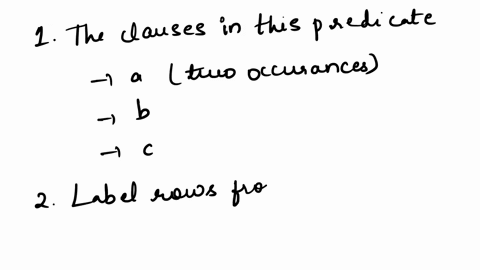 1. The clauses in this predicate
→ a (two occurances)
→ b
→ c
2. Label rows fro